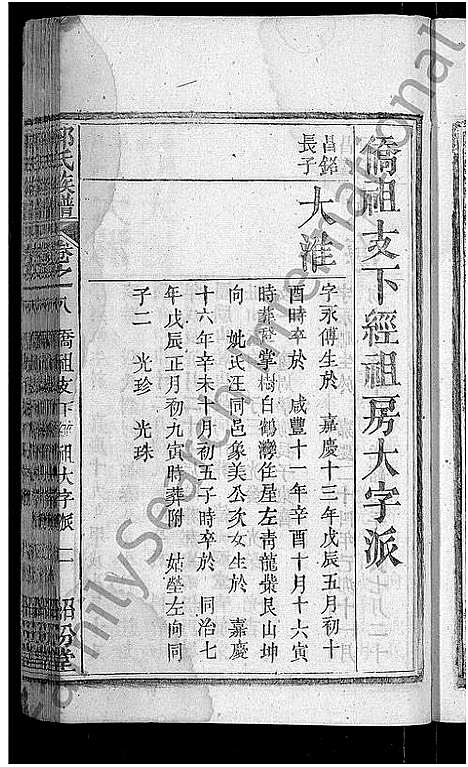 僑祖支下經祖房大字派
昌銘長子
大淮
字永傳生於 嘉慶十三年戊辰五月初十
酉時卒於 咸豐十一年辛酉十月十六寅
時葬 掌樹白鶴灣住屋左青龍業艮山坤
向 妣氏汪同邑象美公次女生於 嘉慶
十六年辛未十月初五子時卒於 同治七
年戊辰正月初九寅時葬附 姑塋左向同
子二 光珍 光珠
氏族譜 卷之八 僑祖支下經祖大字派 二
FamilySearch International